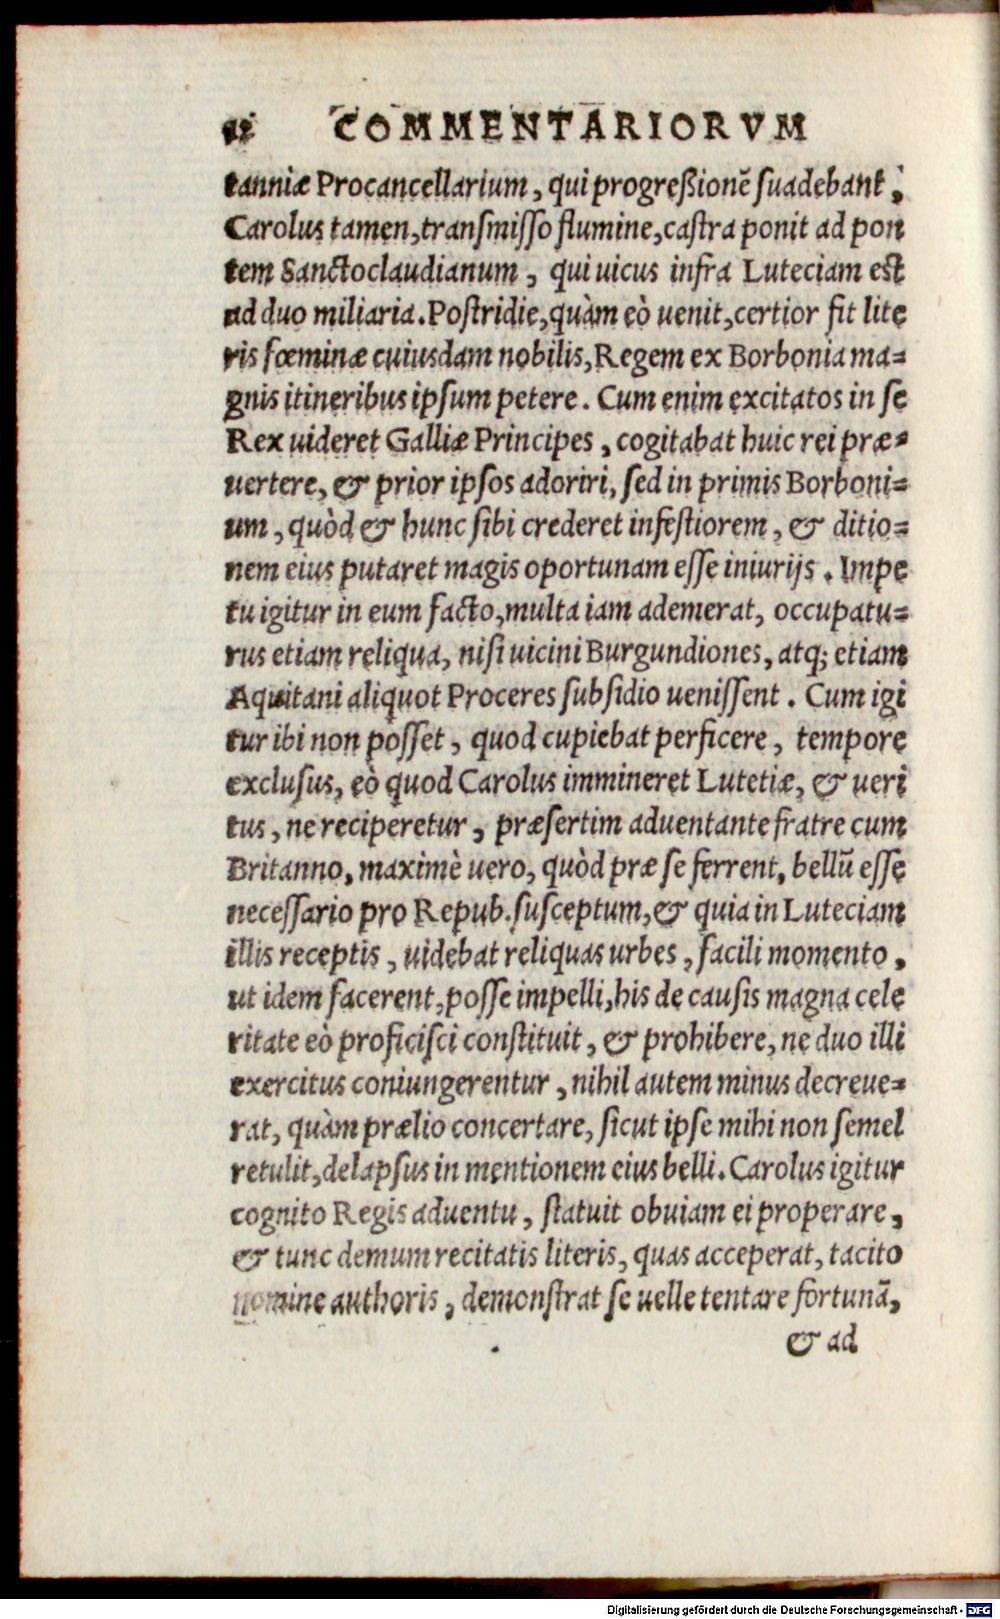 12 COMMENTARIORVM
tanniæ Procancellarium, qui progreßionē suadebant,
Carolus tamen, transmisso flumine, castra ponit ad pon
tem Sanctoclaudianum, qui uicus infra Luteciam est
ad duo miliaria. Postridie, quàm eò uenit, certior fit lite
ris fœminæ cuiusdam nobilis, Regem ex Borbonia ma=
gnis itineribus ipsum petere. Cum enim excitatos in se
Rex uideret Galliæ Principes, cogitabat huic rei præ=
uertere, & prior ipsos adoriri, sed in primis Borboni=
um, quòd & hunc sibi crederet infestiorem, & ditio=
nem eius putaret magis oportunam esse iniurijs. Impe
tu igitur in eum facto, multa iam ademerat, occupatu=
rus etiam reliqua, nisi uicini Burgundiones, atq; etiam
Aquitani aliquot Proceres subsidio uenissent. Cum igi
tur ibi non posset, quod cupiebat perficere, tempore
exclusus, eò quod Carolus immineret Lutetiæ, & ueri
tus, ne reciperetur, præsertim aduentante fratre cum
Britanno, maximè uero, quòd præ se ferrent, bellū esse
necessario pro Repub. susceptum, & quia in Luteciam
illis receptis, uidebat reliquas urbes, facili momento,
ut idem facerent, posse impelli, his de causis magna cele
ritate eò proficisci constituit, & prohibere, ne duo illi
exercitus coniungerentur, nihil autem minus decreue=
rat, quàm prælio concertare, sicut ipse mihi non semel
retulit, delapsus in mentionem eius belli. Carolus igitur
cognito Regis aduentu, statuit obuiam ei properare,
& tunc demum recitatis literis, quas acceperat, tacito
nomine authoris, demonstrat se uelle tentare fortunā,
& ad
Digitalisierung gefördert durch die Deutsche Forschungsgemeinschaft - DFG